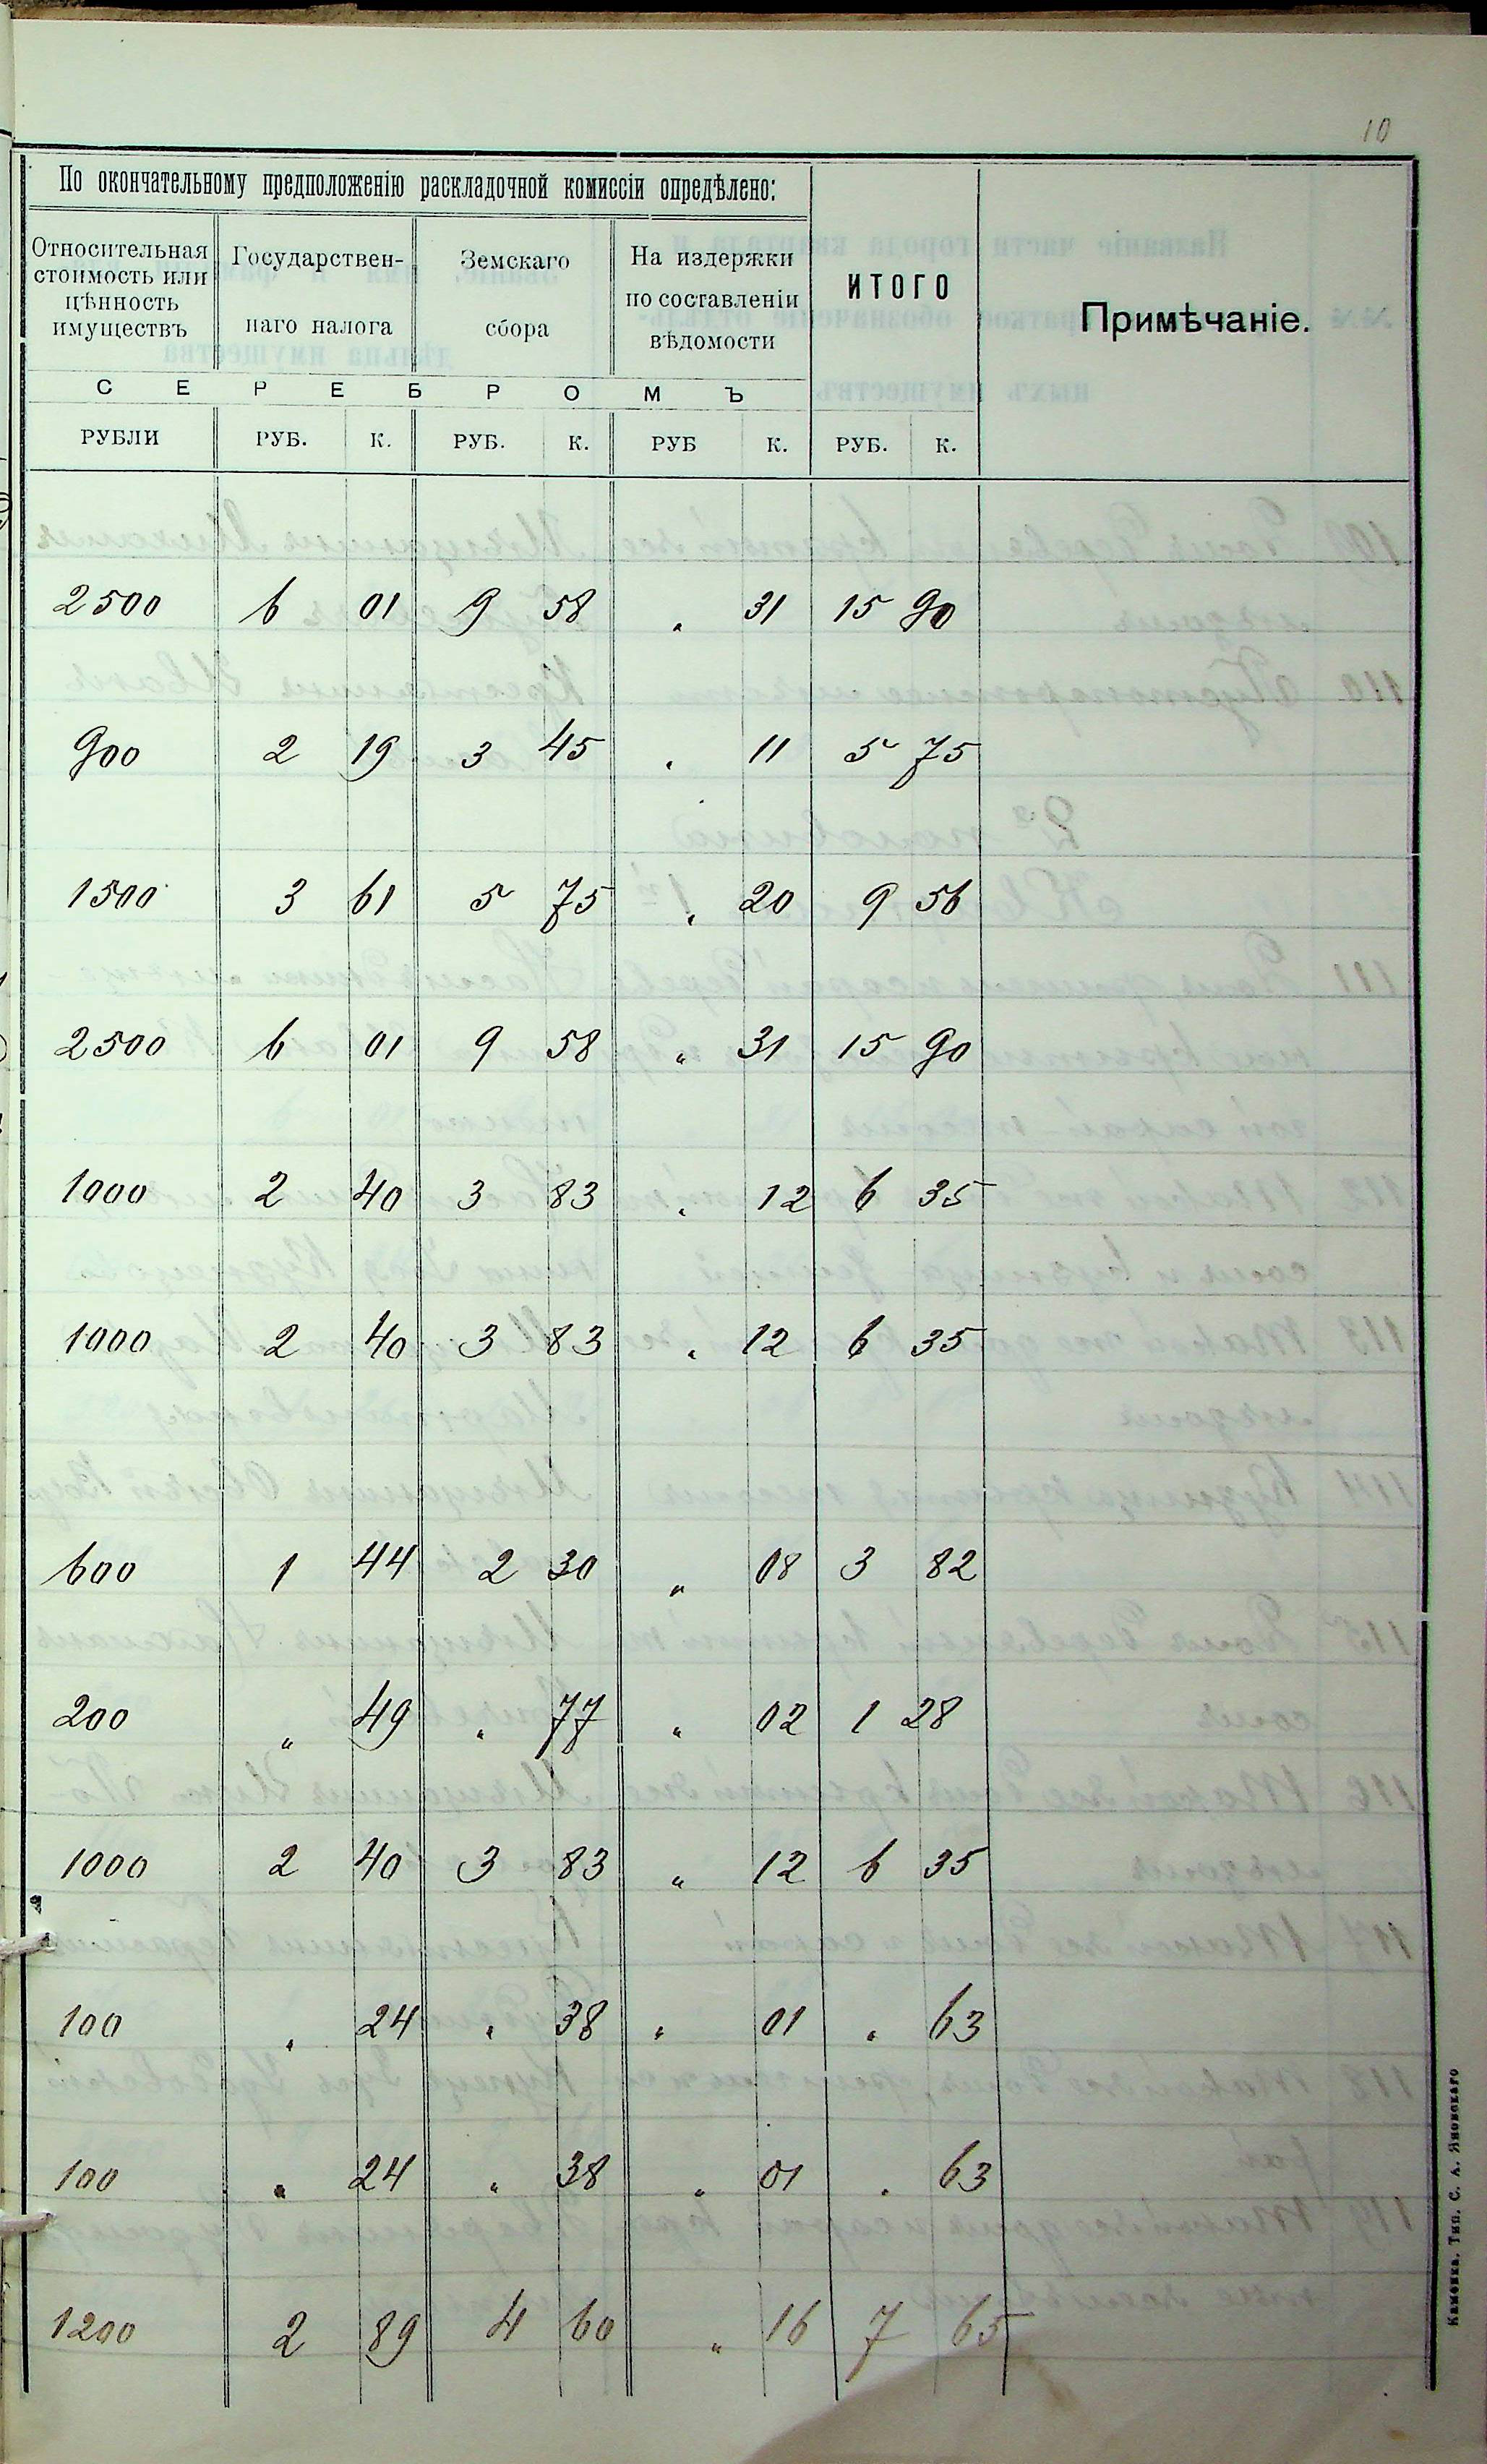 10
По окончательному предположенію раскладочной комиссіи опредѣлено:
Относительная стоимость или цѣнность имуществъ
Государственнаго налога
Земскаго сбора
На издержки по составленіи вѣдомости
ИТОГО
Примѣчаніе.
С Е Р Е Б Р О М Ъ
РУБЛИ РУБ. К. РУБ. К. РУБ К. РУБ. К.
2500 6 01 9 58 " 31 15 90
900 2 19 3 45 " 11 5 75
1500 3 61 5 75 " 20 9 56
2500 6 01 9 58 " 31 15 90
1000 2 40 3 83 " 12 6 35
1000 2 40 3 83 " 12 6 35
600 1 44 2 30 " 08 3 82
200 " 49 " 77 " 02 1 28
1000 2 40 3 83 " 12 6 35
100 " 24 " 38 " 01 " 63
100 " 24 " 38 " 01 " 63
1200 2 89 4 60 " 16 7 65
Каменка. Тип. С. А. Яновскаго